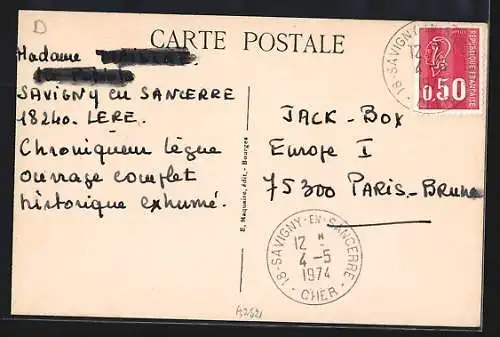 D
CARTE POSTALE
Madame
SAVIGNY en SANCERRE
18240. LERE.
Chroniqueur lègue
ouvrage complet
historique exhumé.
E. Maquaire, édit. - Bourges
JACK-BOX
Europe I
75300 PARIS.-Brune
18 - SAVIGNY-EN-SANCERRE
12 H
4-5
1974
CHER
18-SAVIGNY-EN
12
4
REPUBLIQUE FRANÇAISE
0,50